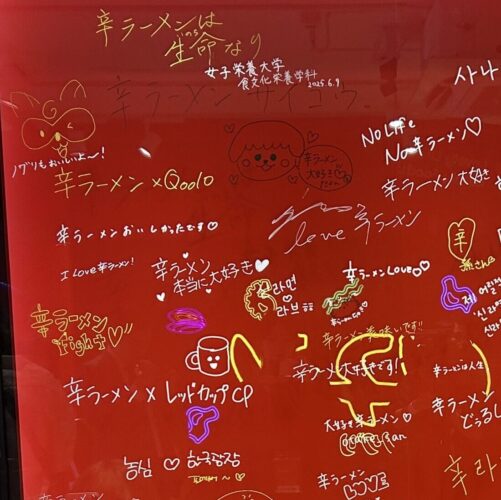 辛ラーメンは
生命なり
いのち
女子栄養大学
食文化栄養学科
2025.6.9
辛ラーメン サイコウ
사나
No Life
No 辛ラーメン♡
ノグリもおいしいよ〜!
辛ラーメン
大好き
辛ラーメン×Qoo10
辛ラーメン大好き
love 辛ラーメン
辛ラーメンおいしかったです♡
辛
I LOVE 辛ラーメン!
辛ラーメン
本当に大好き♥
辛ラーメンLOVE♡
라면
라브
辛ラーメン
fight
辛ラーメン大好きです!
辛ラーメンは人生
辛ラーメン×レッドカップCP
大好き辛ラーメン♡
辛ラーメン
농심 ♡ 한국광장
辛ラーメン
LOVE